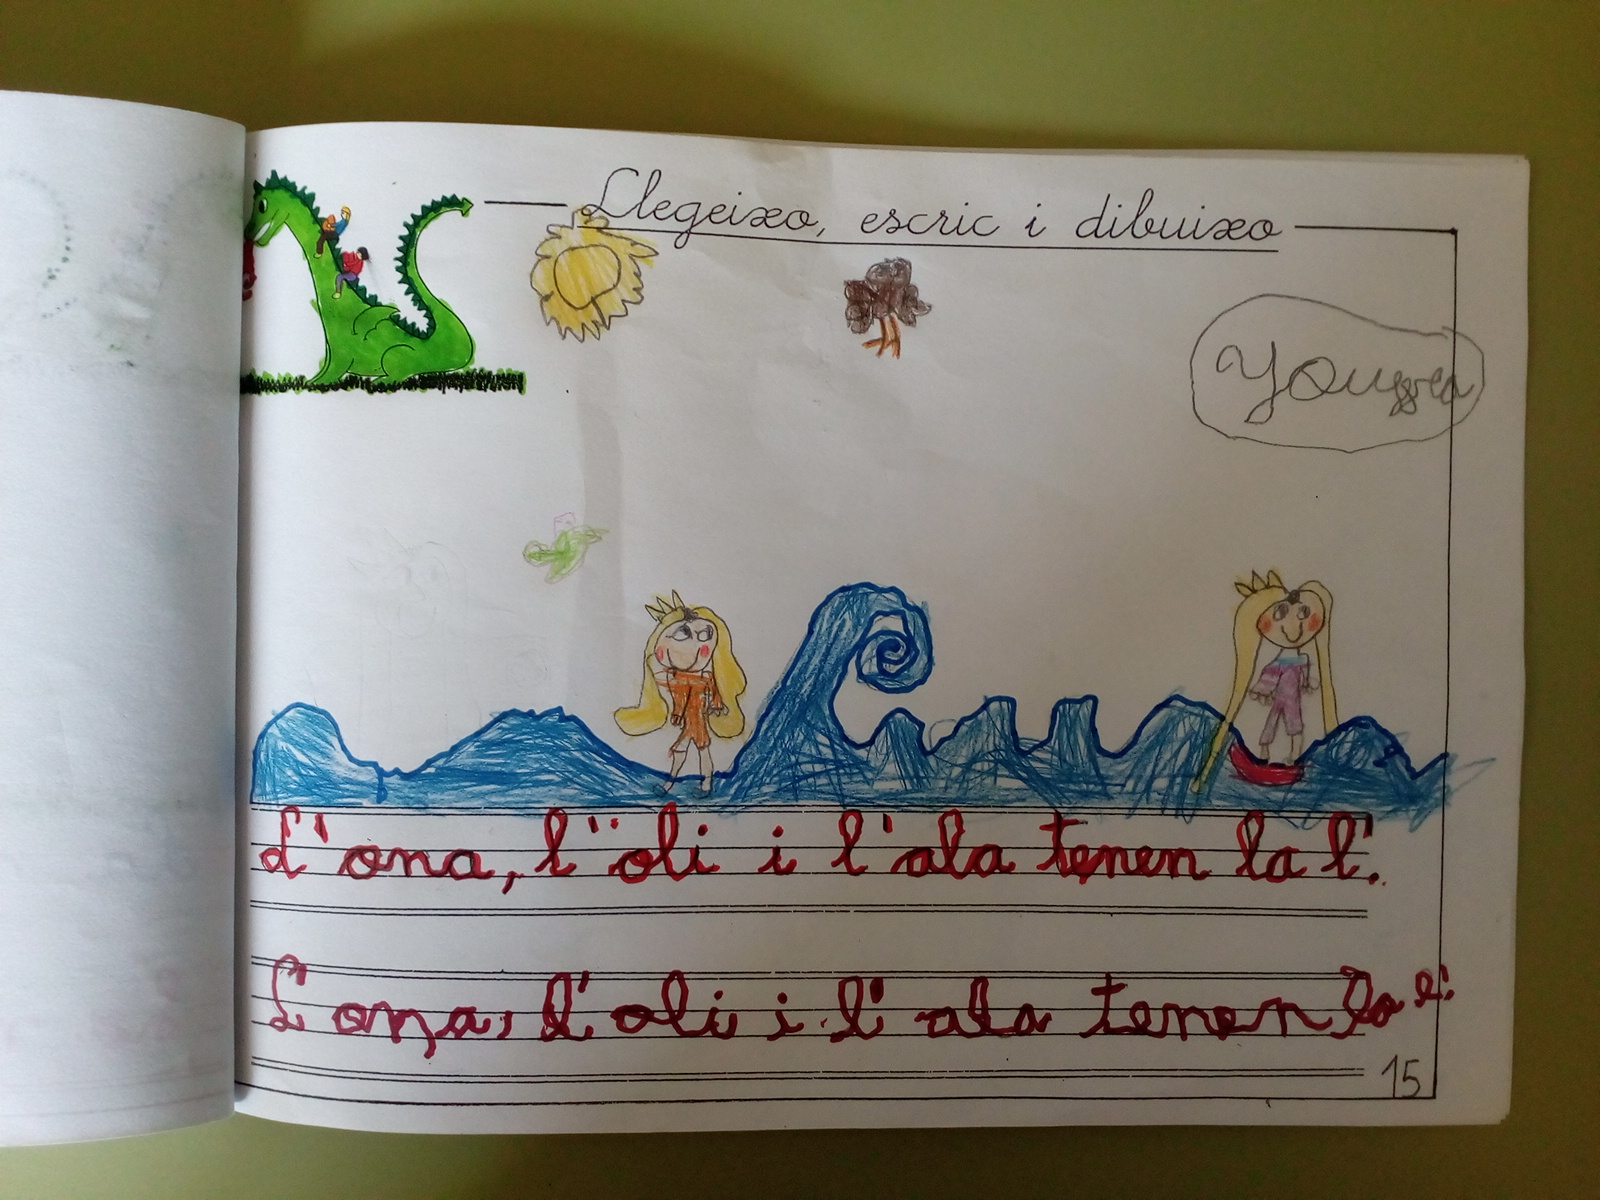 Llegeixo, escric i dibuixo
Youssra
L'ona, l'oli i l'ala tenen la l'.
L'ona, l'oli i l'ala tenen la l'
15